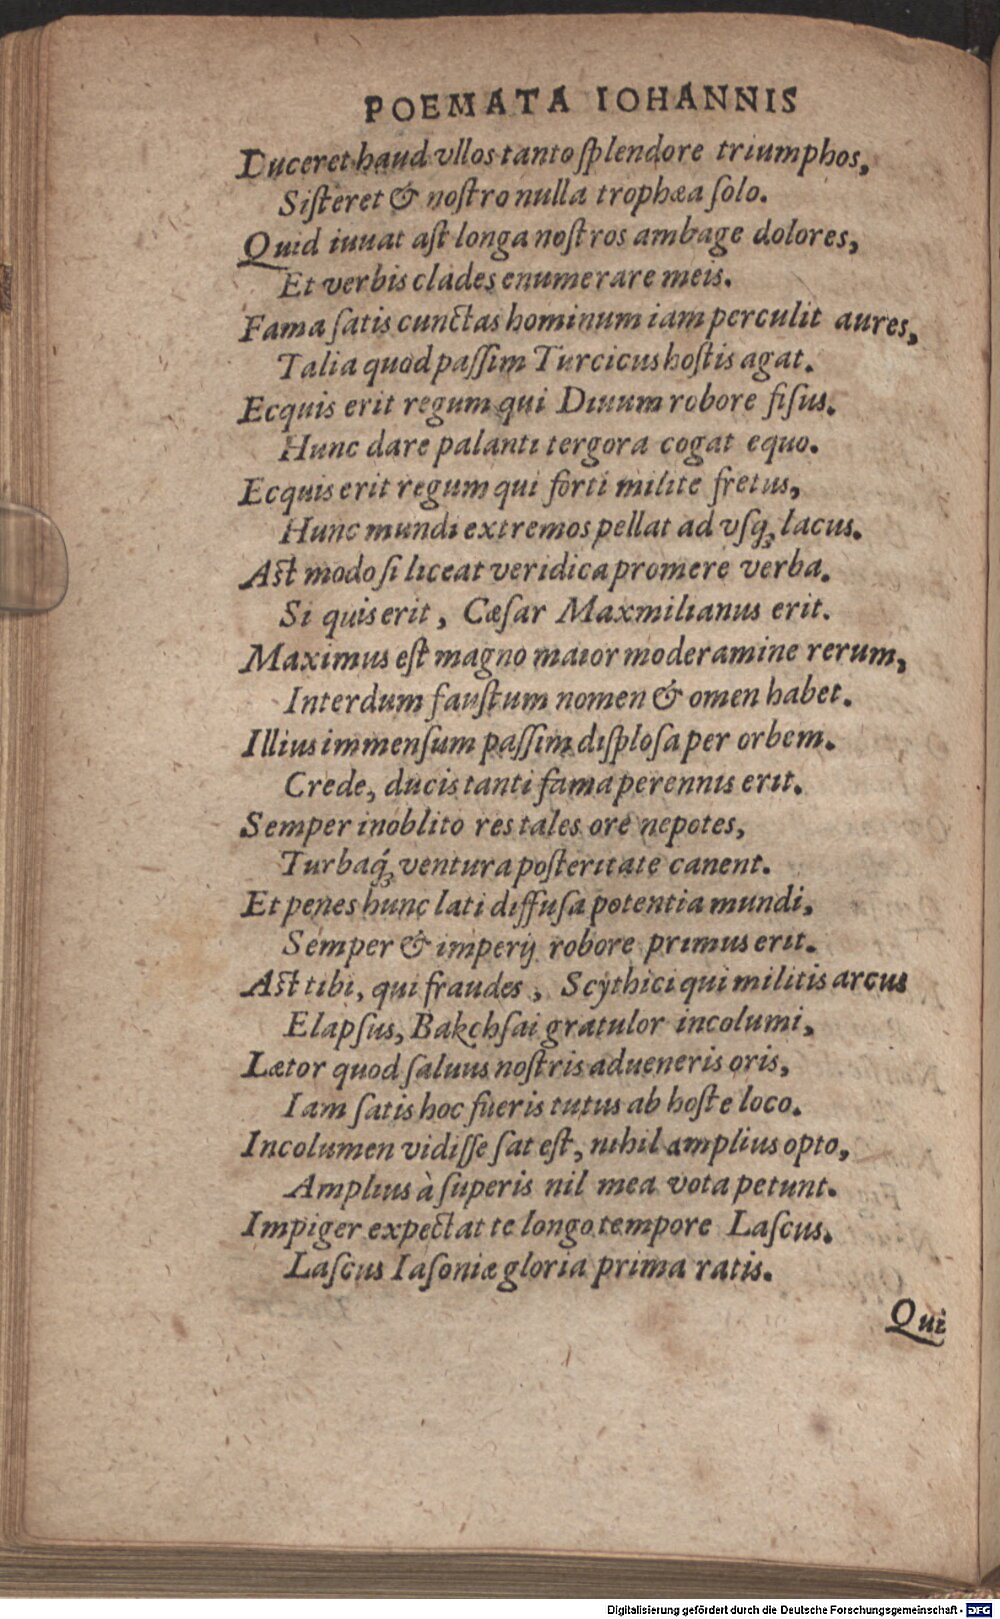 POEMATA IOHANNIS
Duceret haud vllos tanto ſplendore triumphos,
Siſteret & noſtro nulla trophæa ſolo.
Quid iuuat aſt longa noſtros ambage dolores,
Et verbis clades enumerare meis.
Fama ſatis cunctas hominum iam perculit aures,
Talia quod paſſim Turcicus hoſtis agat.
Ecquis erit regum qui Diuum robore fiſus.
Hunc dare palanti tergora cogat equo.
Ecquis erit regum qui forti milite fretus,
Hunc mundi extremos pellat ad vſq; lacus.
Aſt modo ſi liceat veridica promere verba.
Si quis erit, Cæſar Maxmilianus erit.
Maximus eſt magno maior moderamine rerum,
Interdum fauſtum nomen & omen habet.
Illius immenſum paſſim diſploſa per orbem.
Crede, ducis tanti fama perennis erit.
Semper inoblito res tales ore nepotes,
Turbaq́; ventura poſteritate canent.
Et penes hunc lati diffuſa potentia mundi,
Semper & imperij robore primus erit.
Aſt tibi, qui fraudes, Scythici qui militis arcus
Elapſus, Bakchſai gratulor incolumi,
Lætor quod ſaluus noſtris adueneris oris,
Iam ſatis hoc fueris tutus ab hoſte loco.
Incolumen vidiſſe ſat eſt, nihil amplius opto,
Amplius à ſuperis nil mea vota petunt.
Impiger expectat te longo tempore Laſcus.
Laſcus Iaſoniæ gloria prima ratis.
Qui
Digitalisierung gefördert durch die Deutsche Forschungsgemeinschaft - DFG